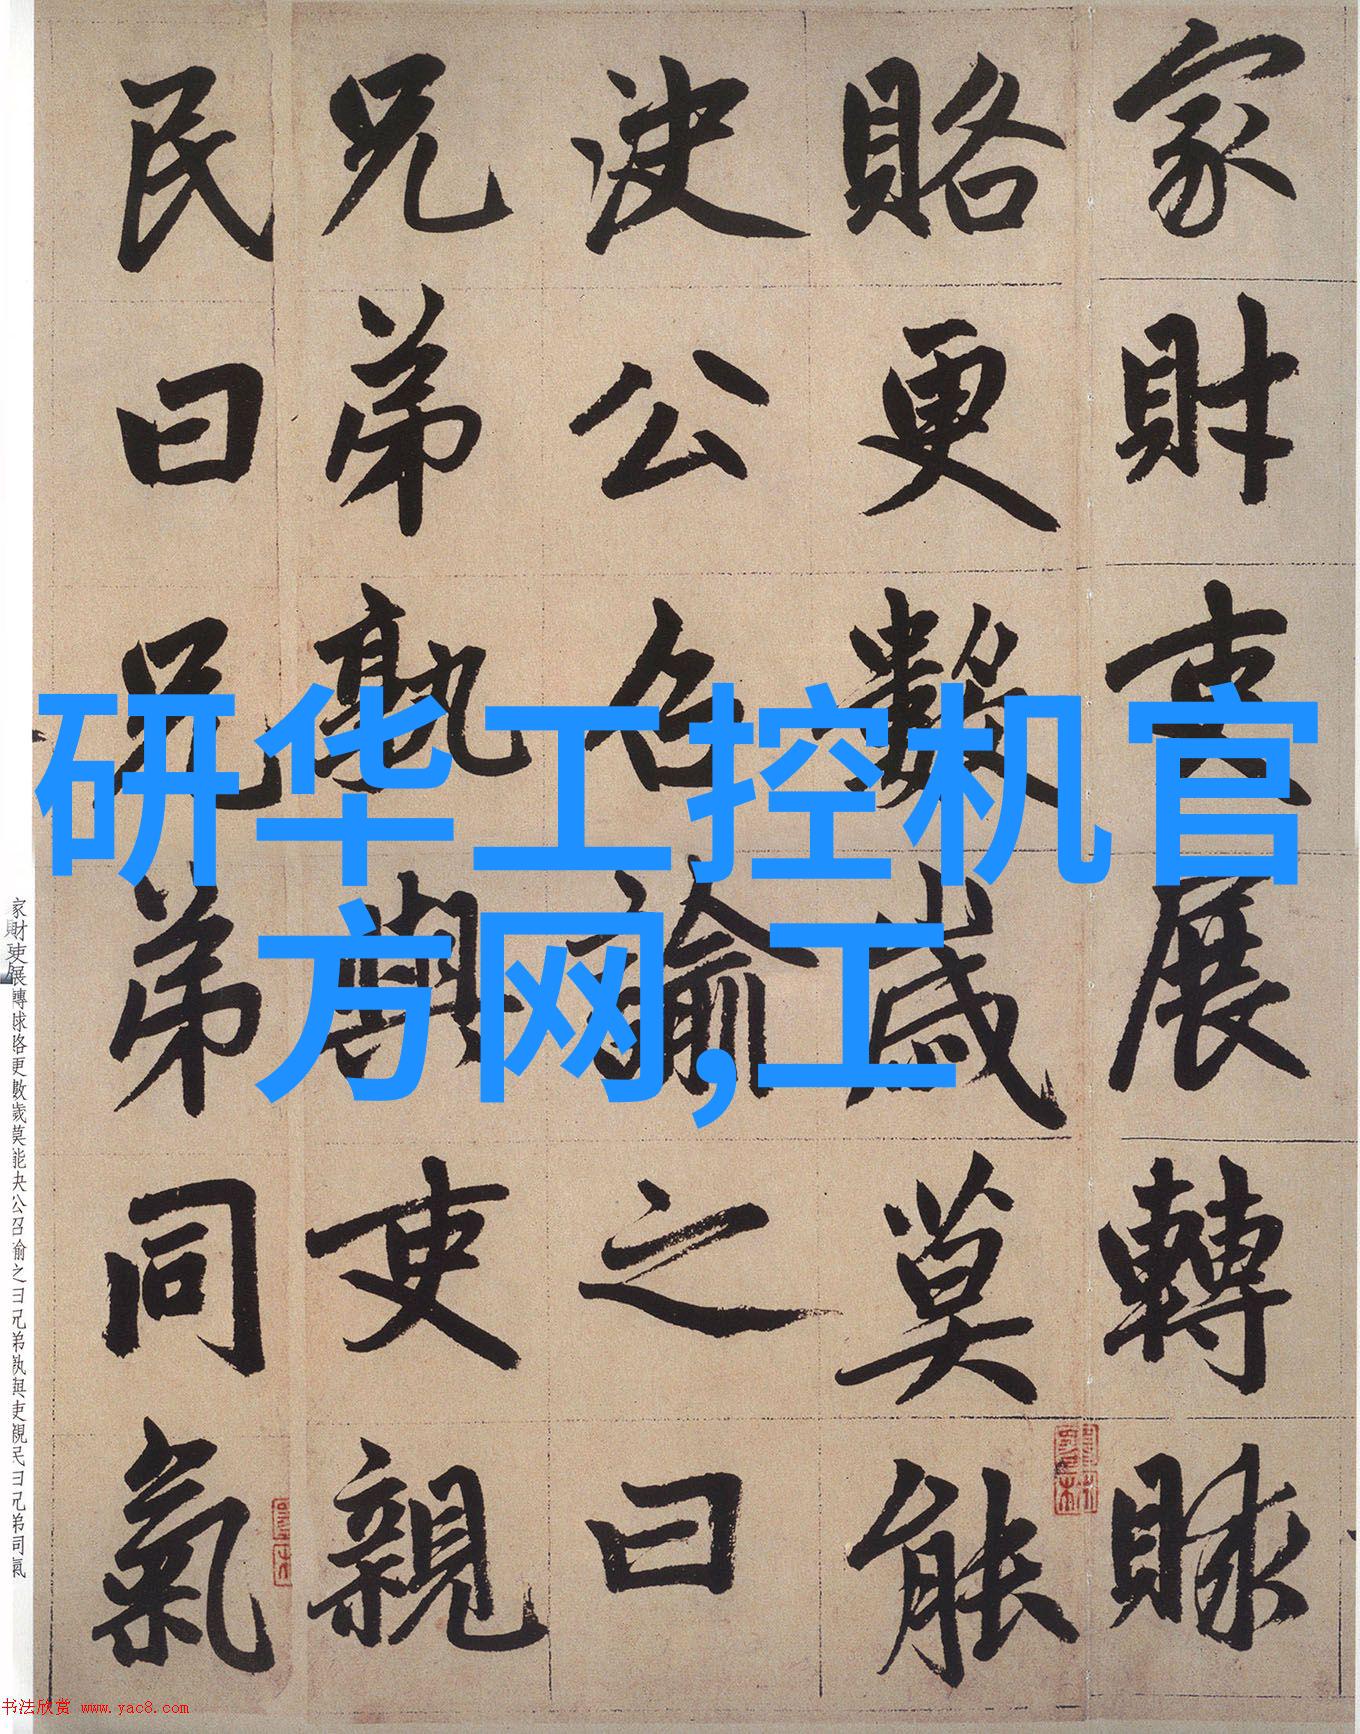 家財吏展轉賕
賂更數歲莫能
決公召諭之曰
兄弟孰與吏親
民曰兄弟同氣
研华工控机官
方网,工
家財吏展轉賕賂更數歲莫能決公召諭之曰兄弟孰與吏親民曰兄弟同氣
书法欣赏 www.yac8.com